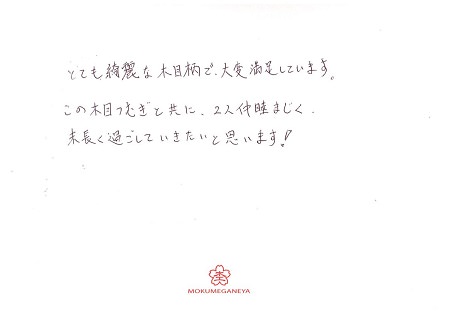 とても綺麗な木目柄で、大変満足しています。
この木目つむぎと共に、2人仲睦まじく、
末長く過ごしていきたいと思います!
MOKUMEGANEYA